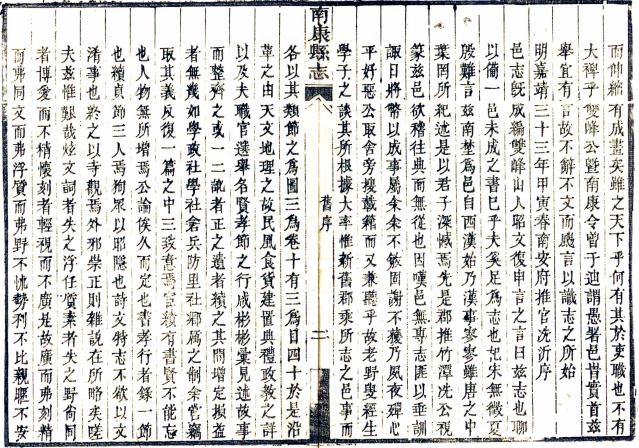 而伸縮有成畫矣雖之天下乎何有其於吏職也不有
大裨乎雙峰公暨南康令曾子迪謂愚署邑時實首茲
舉宜有言故不辭不文而颺言以識志之所始
明嘉靖三十三年甲寅春南安府推官冼沂序
邑志旣成編雙峰山人昭文復申言之曰茲志也聊
以備一邑未成之書已乎夫奚足爲志也杞宋無徵夏
殷難言茲南埜爲邑自西漢始乃漢事寥寥雖唐之中
葉罔所紀述是以君子深慽焉先是郡推竹潭冼公視
篆茲邑欲稽往典而無從也因嘆邑無專志匪以垂訓
諏日將幣以成事屬余余不敏固謝不獲乃夙夜殫心
平好惡公取舍旁搜載籍而又兼聽乎故老野叟經生
學子之談其所根據大率惟新舊郡乘所志之邑事而
南康縣志
舊序
二
各以其類節之爲圖三爲卷十有三爲目四十於是沿
革之由天文地理之故民風食貨建置典禮政敎之詳
以及夫職官選舉名賢孝節之行咸彬彬彙見述故事
而整齊之或一二訛者正之遺者積之其間增定損益
者無幾如學政社學社倉兵防里社鄉厲之制余嘗竊
取其義反復一篇之中三致意焉宦績有書賢不能忘
也人物無所增焉公論俟久而定也書孝行者錄一節
也積貞節三人焉狥眾以耶隱也詩文特志不欲以文
淆事也終之以寺觀焉外邪崇正則雜說在所略矣嗟
夫茲惟艱哉炫文詞者失之浮任質素者失之野尙同
者博愛而不精懷刻者輕視而不廣是故廣而弗刻精
而弗同文而弗浮質而弗野不怵勢利不比親暱不安